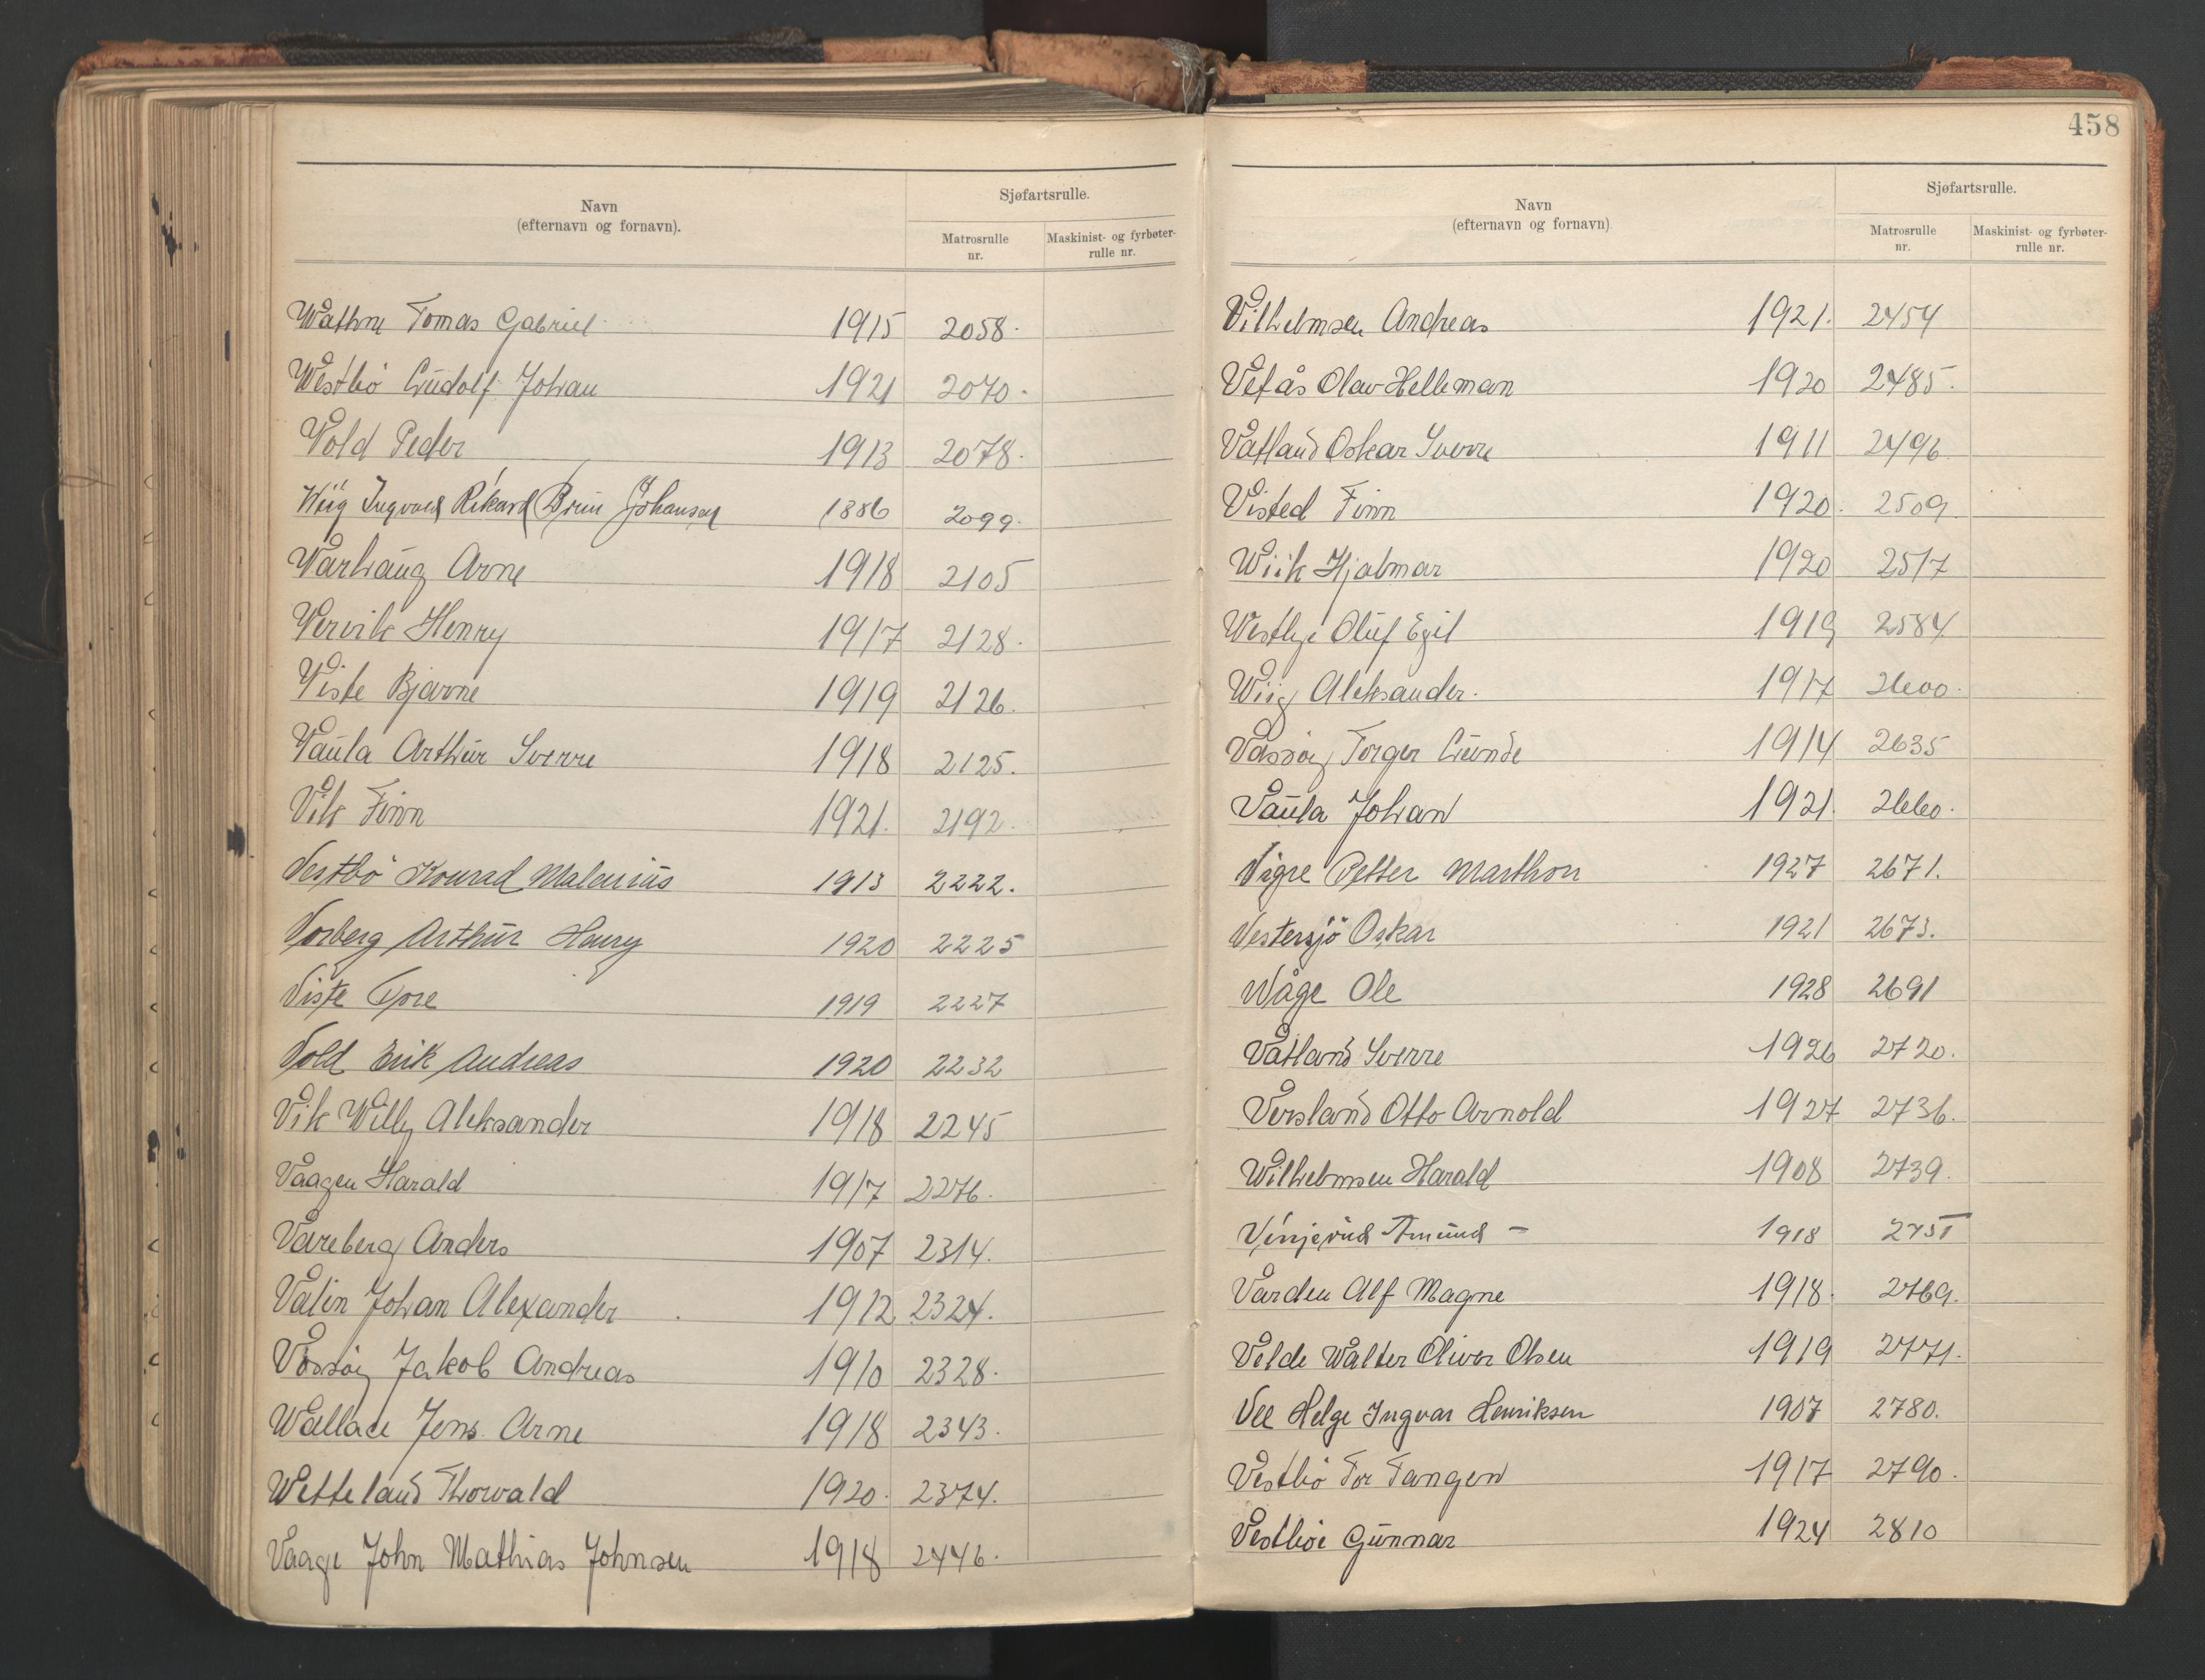 Navn
(efternavn og fornavn).
Sjøfartsrulle.
Matrosrulle nr.
Maskinist- og fyrbøter-rulle nr.
Wathne Tomas Gabriel 1915 2058.
Westbö Gudolf Johan 1921 2070.
Vold Peder 1913 2078.
Wiig Ingvald Rikard Brun Johansen 1886 2099.
Varhaug Arne 1918 2105
Vervik Henry 1917 2128.
Viste Bjarne 1919 2126.
Vaula Arthur Sverre 1918 2125.
Vik Finn 1921. 2192.
Vestbö Konrad 1913 2222.
Vorberg Arthur Harry 1920 2225
Viste Tore 1919 2227
Vold Erik Andreas 1920 2232
Vik Willy Aleksander 1918 2245
Vaagen Harald 1917 2276.
Vareberg Anders 1907 2314.
Valin Johan Alexander 1912 2324.
Vassöy Jakob Andreas 1910 2328.
Wallace Jens Arne 1918 2343.
Wetteland Thorvald 1920. 2374.
Vaage John Mathias Johnsen 1918 2446.
458
Navn
(efternavn og fornavn)
Sjøfartsrulle.
Matrosrulle nr.
Maskinist- og fyrbøter-rulle nr.
Vilhelmsen Andreas 1921. 2454
Olav Helleman 1920 2485.
Vatland Oskar Sverre 1911 2496
Visted Finn 1920. 2509.
Wiik Hjalmar 1920 2517
Westlye Oluf Egil 1919 2584
Wiig Aleksander. 1917 2600.
Vassöy Torger Gunde 1914 2635
Vaula Johan 1921. 2660.
Vigre Petter Marthon 1927 2671.
Vestersjö Oskar 1921 2673.
Våge Ole 1928 2691
Vatland Sverre 1926 2720.
Versland Otto Arnold 1927 2736.
Wilhelmsen Harald 1908 2739.
Vinjerud Amund – 1918 2751
Varden Alf Magne 1918. 2769.
Velde Walter Oliver Olsen 1919 2771.
Vee Helge Ingvar Henriksen 1907 2780.
Vestbö Tor Tangen 1917 2790.
Vestböe Gunnar 1924 2810